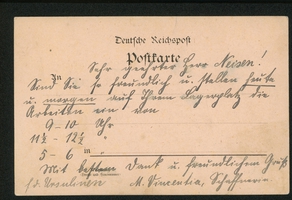 Deutsche Reichspost
Postkarte
Sehr geehrter Herr Neisen!
In
Sind Sie so freundlich u. stellen heute
u. morgen auf Ihrem Lagerplatz die
Arbeiten ein von
9-10 Uhr
11½ - 12½
5-6 in
Mit bestem Dank u. freundlichem Gruß
f. d. Ursulinen M. Vincentia,